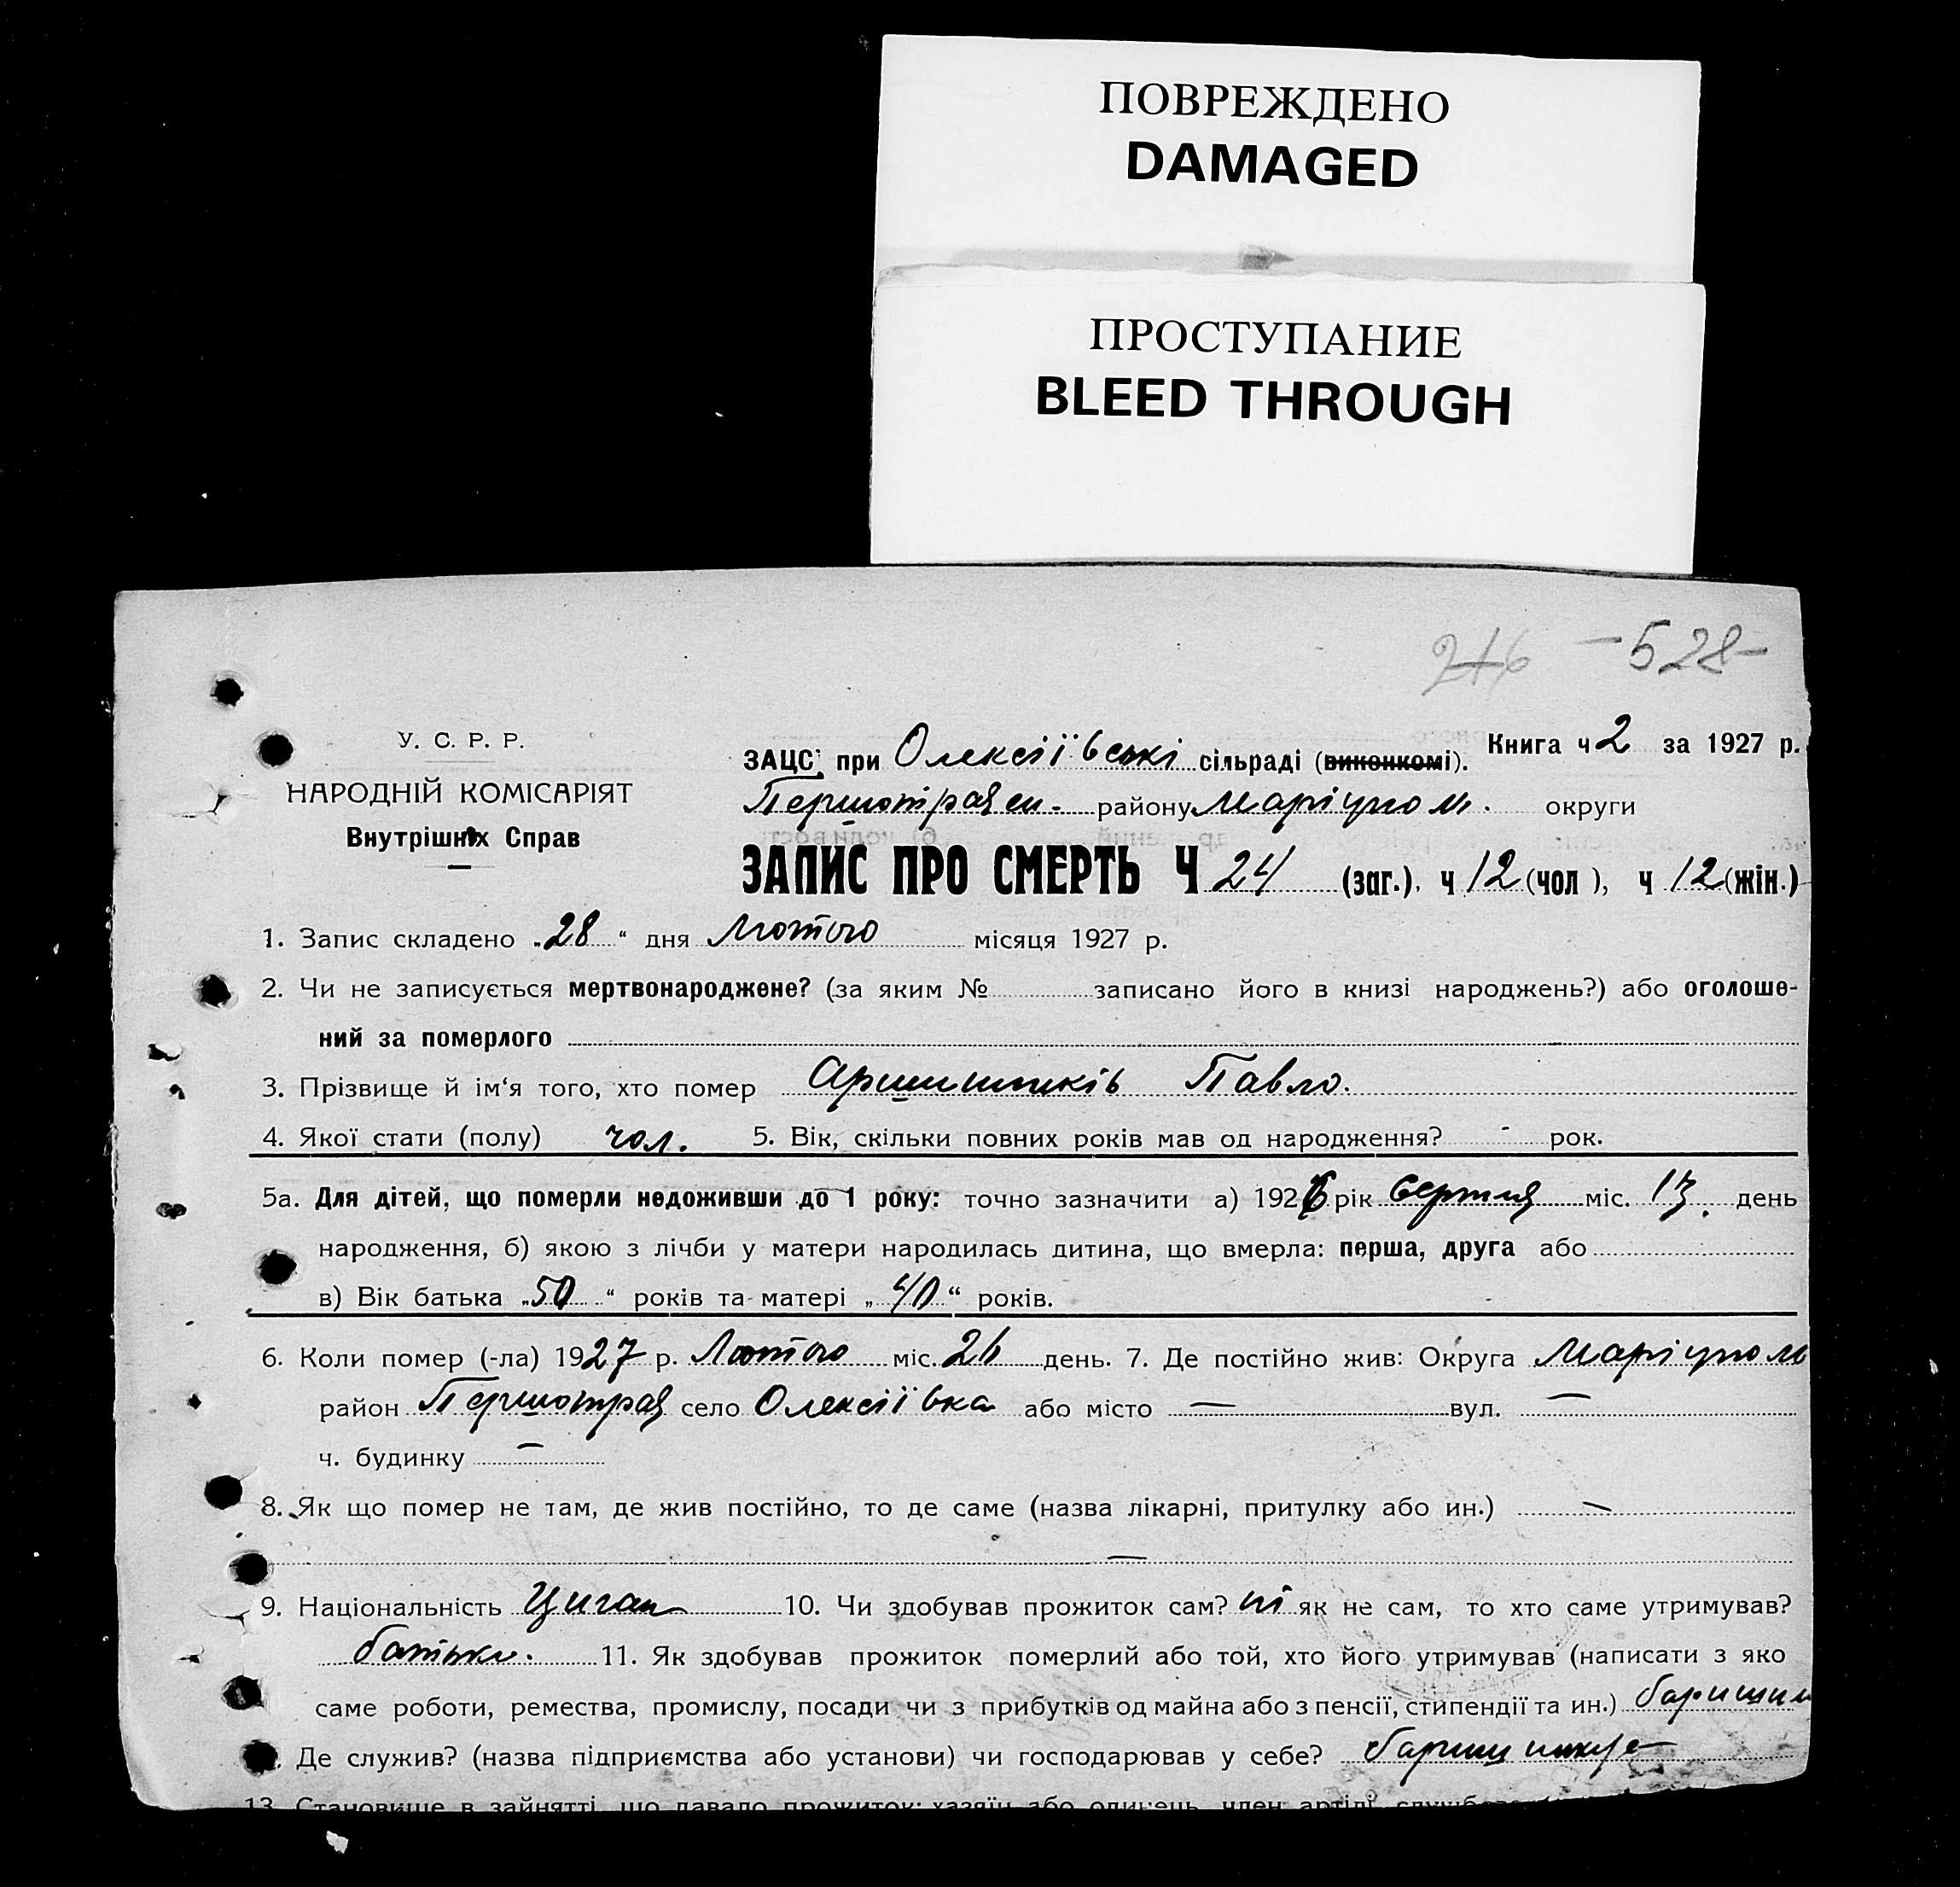 ПОВРЕЖДЕНО
DAMAGED
ПРОСТУПАНИЕ
BLEED THROUGH
246 -528-
У. С. Р. Р.
НАРОДНІЙ КОМІСАРІЯТ
Внутрішніх Справ
Книга ч 2 за 1927 р.
ЗАЦС при Олексіївські сільраді (виконкомі).
Першотравен. району Маріупол. округи
ЗАПИС ПРО СМЕРТЬ Ч 24 (заг.), ч 12 (чол), ч 12 (жін.)
1. Запис складено „28“ дня Лютого місяця 1927 р.
2. Чи не записується мертвонароджене? (за яким № записано його в книзі народжень?) або оголоше-
ний за померлого
3. Прізвище й ім‘я того, хто помер Павло.
4. Якої стати (полу) чол. 5. Вік, скільки повних років мав од народження? - рок.
5а. Для дітей, що померли недоживши до 1 року: точно зазначити а) 1926 рік Серпня міс. 13. день
народження, б) якою з лічби у матери народилась дитина, що вмерла: перша, друга або
в) Вік батька „50“ років та матері „40“ років.
6. Коли помер (-ла) 1927 р. Лютого міс. 26 день. 7. Де постійно жив: Округа Маріуполь
район Першотрав село Олексіївка або місто — вул. —
ч. будинку —
8. Як що помер не там, де жив постійно, то де саме (назва лікарні, притулку або ин.) —
—
9. Національність Циган 10. Чи здобував прожиток сам? ні як не сам, то хто саме утримував?
батьки. 11. Як здобував прожиток померлий або той, хто його утримував (написати з яко
саме роботи, ремества, промислу, посади чи з прибутків од майна або з пенсії, стипендії та ин.)
Де служив? (назва підприємства або установи) чи господарював у себе?
13. Становище в зайнятті, що давало прожиток: хазяїн або одинець, член артілі,